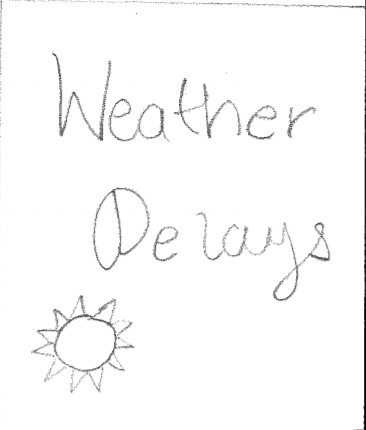 Weather
Delays